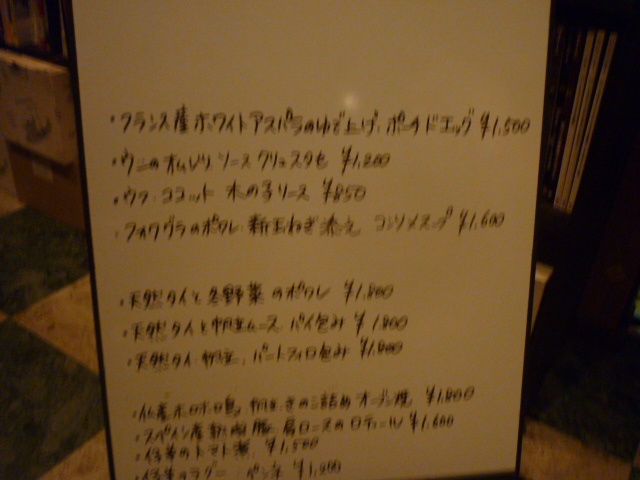 ・フランス産ホワイトアスパラのゆで上げ、ポーチドエッグ ¥1,500
・ウニのオムレツ ソースクリュスタセ ¥1,200
・ウフ ココット 木の子ソース ¥850
・フォワグラのポワレ 新玉ねぎ添え コンソメスープ ¥1,600
・天然タイと冬野菜のポワレ ¥1,800
・天然タイと帆立ムース パイ包み ¥1,800
・天然タイ 帆立、パートフィロ包み ¥1,800
・仏産ホロホロ鳥 帆立、きのこ詰め オーブン焼 ¥1,800
・スペイン産 豚 肩ロースのロティール ¥1,600
・仔羊のトマト煮 ¥1,500
・仔羊のラグー ペンネ ¥1,200